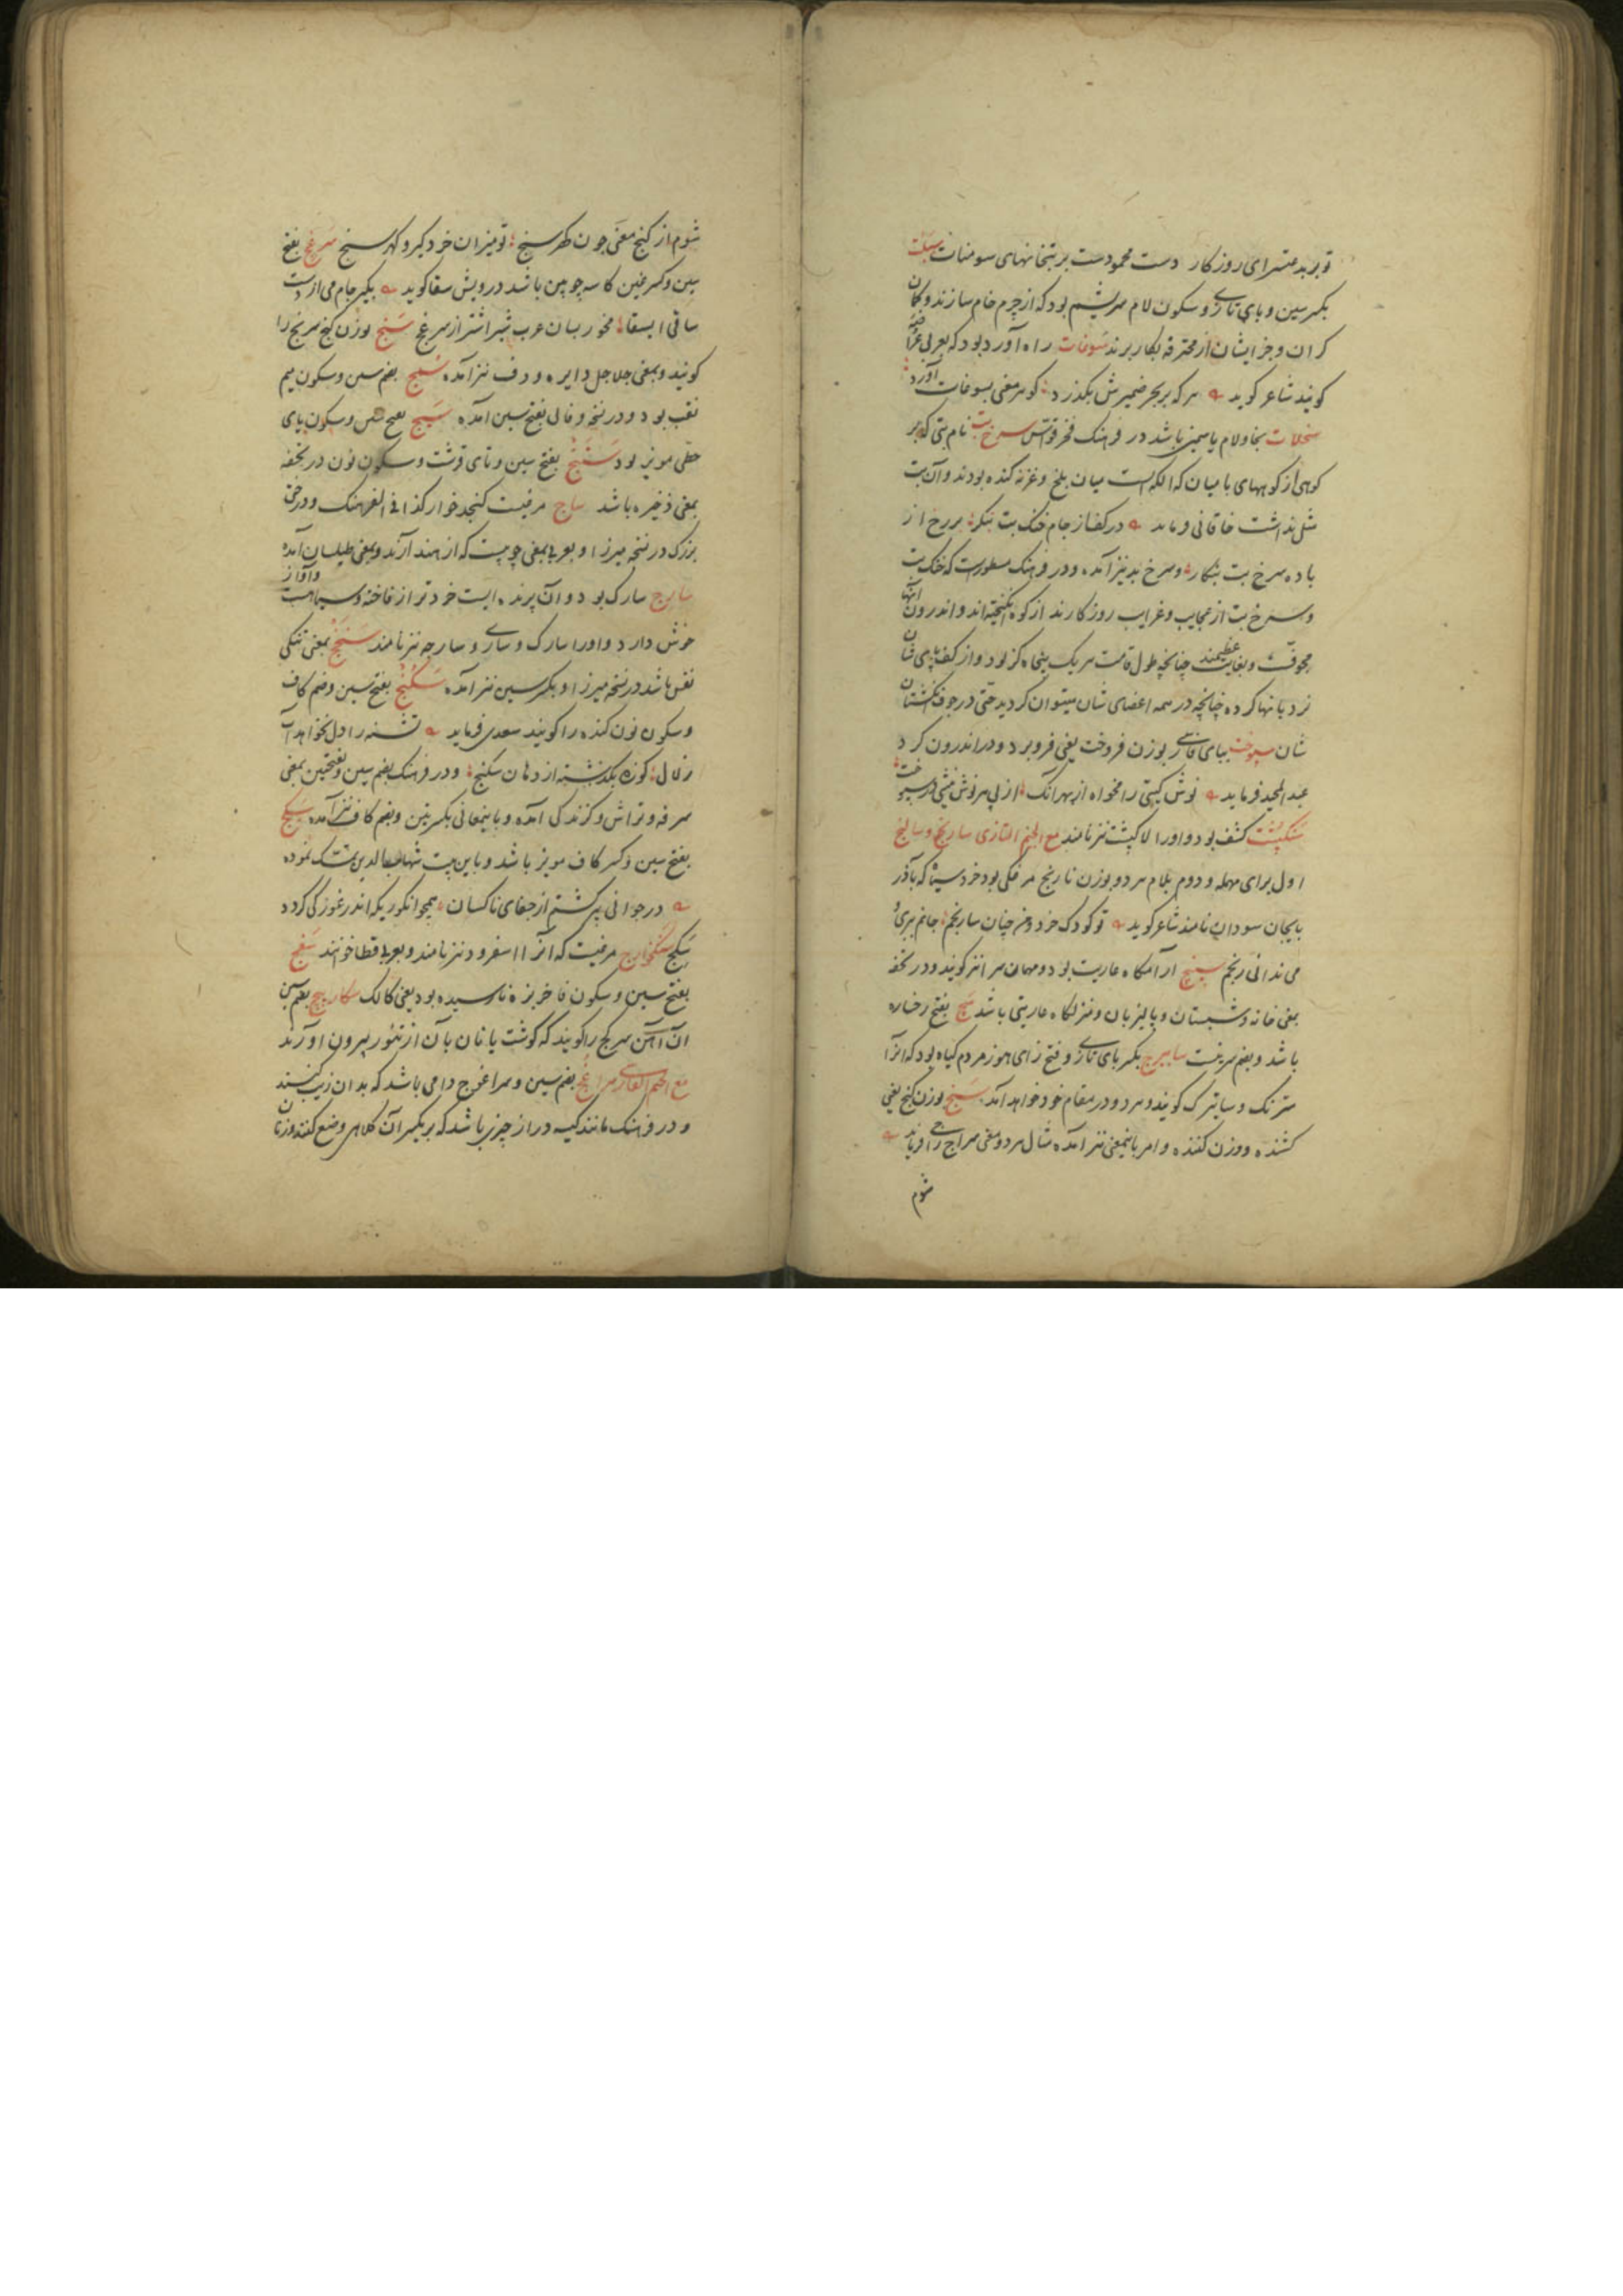 تو بر بد عنتسرای روزکار دست محمودست بر بتخانهای سومنات سبلت
بکسر سین و بای تازی و سکون لام سریشم بود که از چرم خام سازند و کمان
کران و جز ایشان از محترفه بکار برند سوغات راه آورد بود که بعربی عراضه
کویند شاعر کوید هر که بر بحر ضمیرش بکذرد کوهر معنی بسوغات آورد
سنجلات بخا و لام یاسمین باشد در فرهنک فخر قواس سرخ بت نام بتی که بر
کوهی از کوههای بامیان که الکه است میان بلخ و غزنه کنده بودند و آن بت
مثل نداشت خاقانی فرماید در کف از جام خنک بت بنکر بر رخ از
باده سرخ بت بنکار و سرخ بد نیز آمده و در فرهنک مسطورست که خنک بت
و سرخ بت از عجایب و غرایب روزکارند از کوه انکیخته اند و اندرون آنها
مجوفست و بغایت عظیمند چنانچه طول قامت هر یک پنجاه کز بود و از کف پای شان
نردبانها کرده چنانچه در همه اعضای شان میتوان کردید حتی در جوف انکشتان
شان سپوخت ببای فارسی بوزن فروخت یعنی فرو برد و در اندرون کرد
عبد المجید فرماید نوش کیتی را مخواه از بهر آنک از پی هر نوش نیشی در سپوخت
سنکپشت کشف بود و او را لاکپشت نیز نامند مع الجیم التازی سارنج و سالنج
اول برای مهمله و دوم بلام هر دو بوزن نارنج مرغکی بود خرد سیاه که بآذر
بایجان سودان نامند شاعر کوید تو کودک خرد و من چنان سارنجم جانم ببری و
می ندانی رنجم سپنج آرامکاه عاریت بود و مهمان سرا نیز کویند و در تحفه
بمعنی خانه و شبستان و پالیز بان و منزلکاه عاریتی باشد سج بفتح رخساره
باشد و بضم سرینست سابیزج بکسر بای تازی و فتح زای هوز مردم کیاه بود که آنرا
سترنک و سابترک کویند و هر دو در مقام خود خواهد آمد سنج بوزن کنج یعنی
کشنده و وزن کننده و امر باینمعنی نیز آمده مثال هر دو معنی سراج راجی فرماید
شوم
شوم از کنج معنی چون کهر سنج تو میزان خرد کیر و کهر سنج سرغج بفتح
سین و کسر غین کاسه چوبین باشد درویش سقا کوید بکیر جام می از دست
ساقی ابسقا مخور بسان عرب شیر اشتر از سرغج سنج بوزن کنج سرنج را
کویند و بمعنی جلاجل دایره و دف نیز آمده سمج بضم سین و سکون میم
نقب بود و در نسخه وفائی بفتح سین آمده سیج بفتح سین و سکون یای
حطی مویز بود ستنج بفتح سین و تای قرشت و سکون نون در تحفه
بمعنی ذخیره باشد ساج مرغیست کنجد خوار کذا فی الفرهنک و درختی
بزرک در نسخه میرزا و بعربی بمعنی چوبیست که از هند آرند و بمعنی طیلسان آمده
سارج سارک بود و آن پرنده ایست خردتر از فاخته و سیاهست و آواز
خوش دارد و او را سارک و ساری و سارچه نیز نامند سنج بمعنی تنکی
نفس باشد در نسخه میرزا و بکسر سین نیز آمده سکنج بفتح سین و ضم کاف
و سکون نون کنده را کویند سعدی فرماید تشنه را دل نخواهد آب
زلال کوزه بکذشته از دهان سکنج و در فرهنک بضم سین و بفتحین بمعنی
سرفه و تراش و کزندکی آمده و باینمعانی بکسرتین و بضم کاف نیز آمده سکج
بفتح سین و کسر کاف مویز باشد و باین بیت شهاب الدین تمسک نموده
در جوانی پیر کشتم از جفای ناکسان همچو انکوریکه اندر غوزکی کردد
سکج سنکخوارج مرغیست که آنرا اسفرود نیز نامند و بعربی قطا خوانند سفج
بفتح سین و سکون فا خربزه نارسیده بود یعنی کالک سکارنج بضم سین
آن آهن سر کج را کویند که کوشت یا نان بآن از تنور بیرون آورند
مع الجیم الفارسی سراغج بضم سین و سراغوج دامی باشد که بدان زینت کنند
و در فرهنک مانند کیسه دراز چیزی باشد که بر یکسر آن کلاهی وضع کنند و زنان